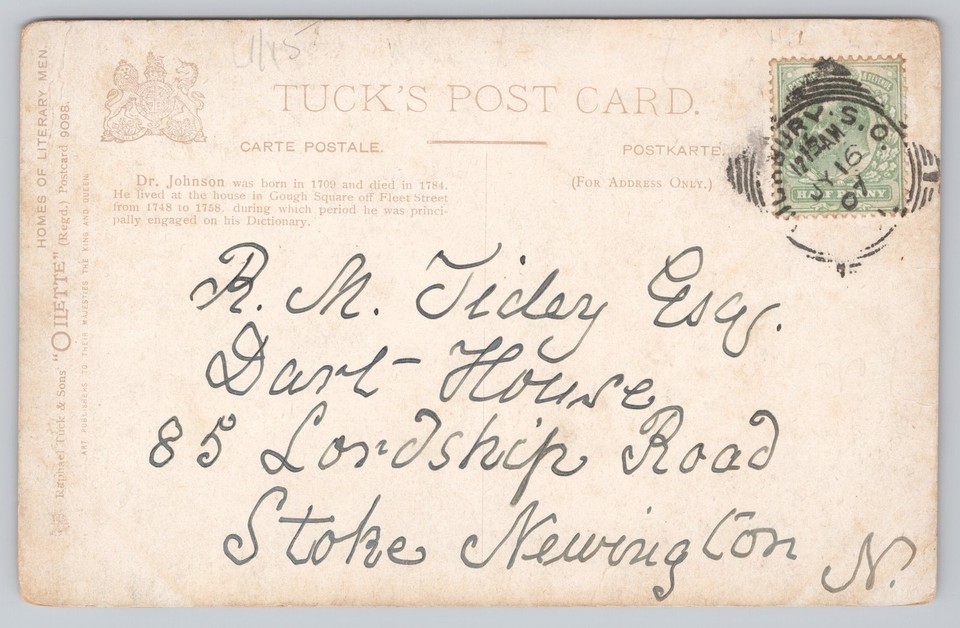 1/15
TUCK'S POST CARD.
CARTE POSTALE.
POSTKARTE.
(FOR ADDRESS ONLY.)
Dr. Johnson was born in 1709 and died in 1784.
He lived at the house in Gough Square off Fleet Street
from 1748 to 1758, during which period he was princi-
pally engaged on his Dictionary.
HOMES OF LITERARY MEN.
Raphael Tuck & Sons' "OILETTE" (Regd.) Postcard 9098.
ART PUBLISHERS TO THEIR MAJESTIES THE KING AND QUEEN.
S.O.
12 15 AM
JY 16
07
HALF PENNY
R. M. Tidey Esq.
Dart House
85 Lordship Road
Stoke Newington
N.